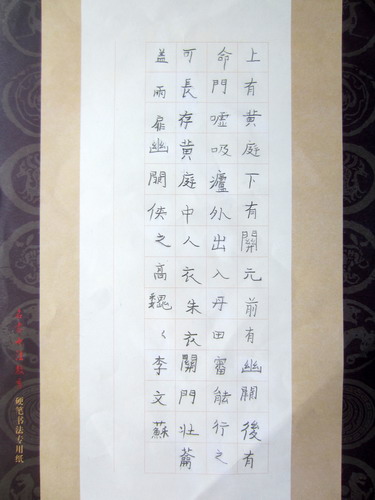 上有黄庭下有關元前有幽闕後有
命門嘘吸瀘外出入丹田審能行之
可長存黄庭中人衣朱衣關門壯籥
盖兩扉幽闕俠之高魏〱李文蘇
硬笔书法专用纸